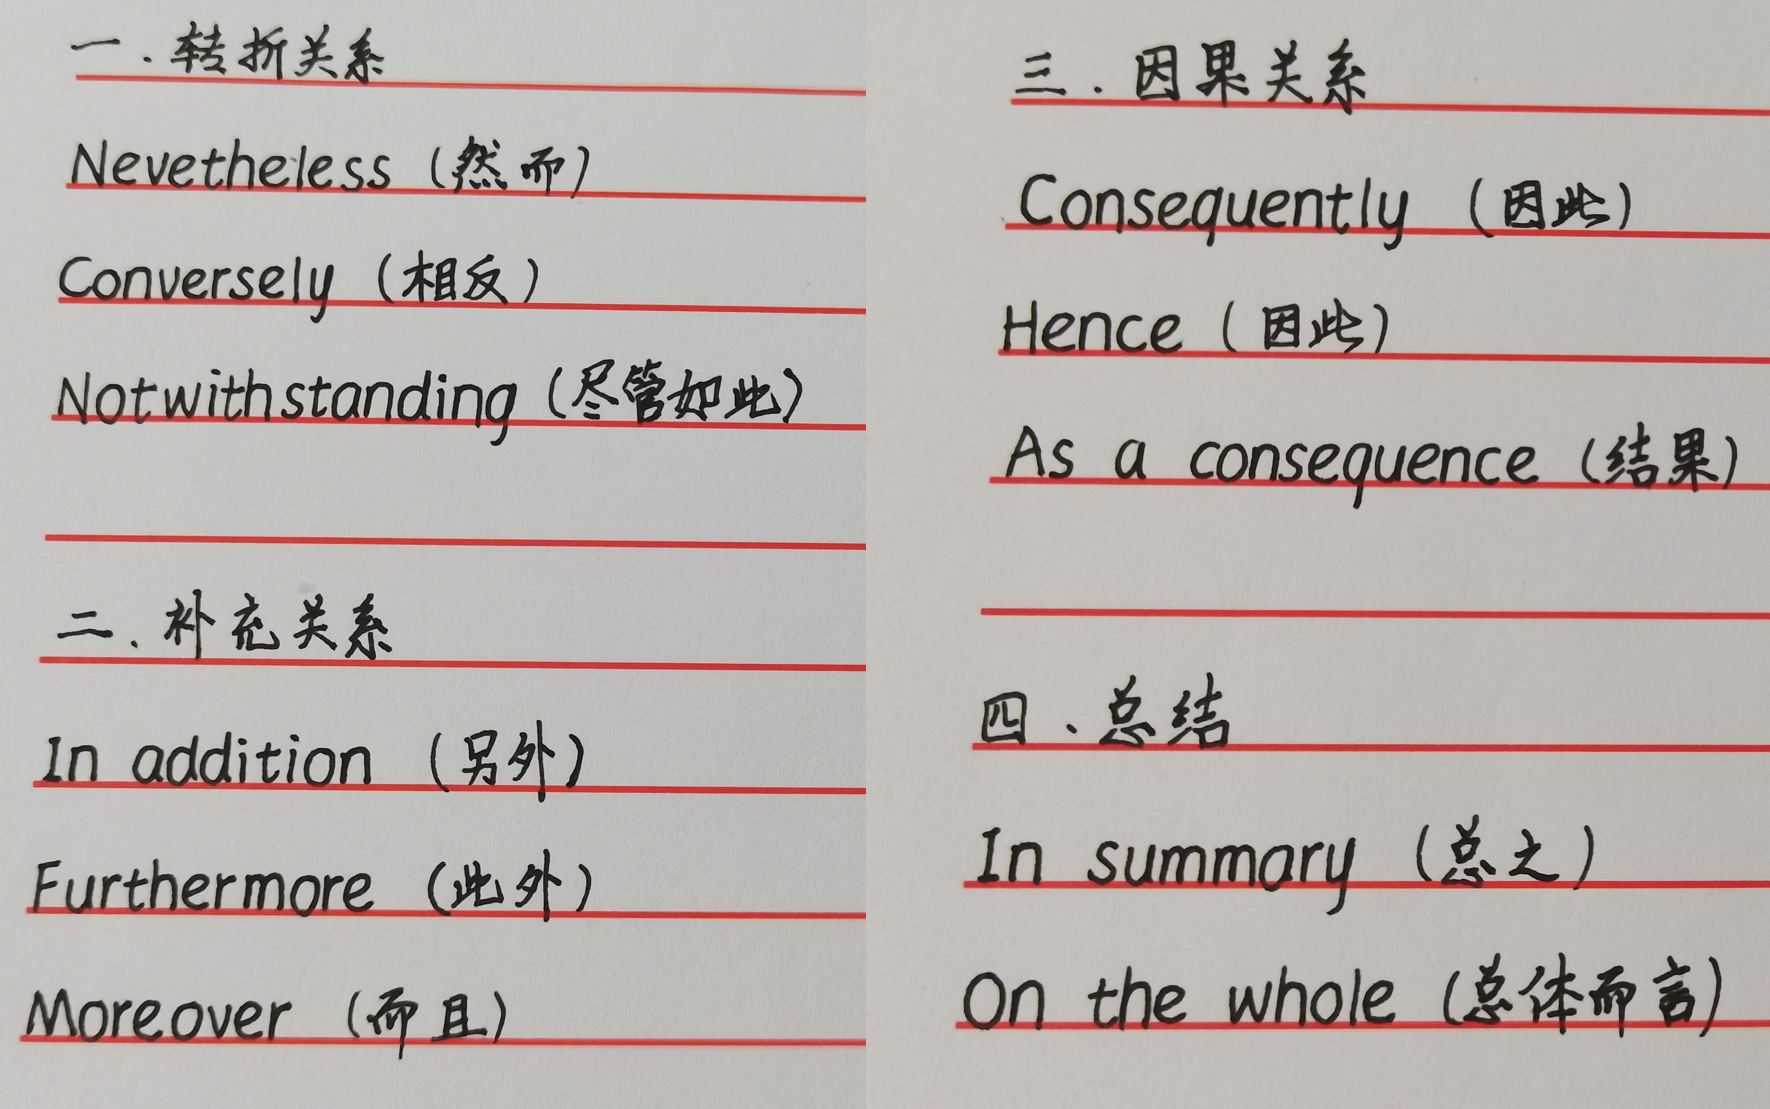 一.转折关系
Nevetheless (然而)
Conversely (相反)
Notwithstanding (尽管如此)
二.补充关系
In addition (另外)
Furthermore (此外)
Moreover (而且)
三.因果关系
Consequently (因此)
Hence (因此)
As a consequence (结果)
四.总结
In summary (总之)
On the whole (总体而言)